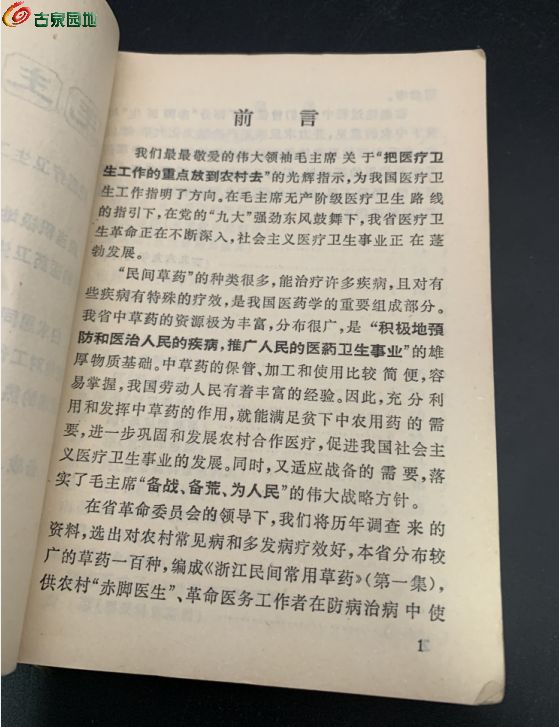 古泉园地
前言
我们最最敬爱的伟大领袖毛主席关于“把医疗卫
生工作的重点放到农村去”的光辉指示，为我国医疗卫
生工作指明了方向。在毛主席无产阶级医疗卫生路线
的指引下，在党的“九大”强劲东风鼓舞下，我省医疗卫
生革命正在不断深入，社会主义医疗卫生事业正在蓬
勃发展。
“民间草药”的种类很多，能治疗许多疾病，且对有
些疾病有特殊的疗效，是我国医药学的重要组成部分。
我省中草药的资源极为丰富，分布很广，是“积极地预
防和医治人民的疾病，推广人民的医药卫生事业”的雄
厚物质基础。中草药的保管、加工和使用比较简便，容
易掌握，我国劳动人民有着丰富的经验。因此，充分利
用和发挥中草药的作用，就能满足贫下中农用药的需
要，进一步巩固和发展农村合作医疗，促进我国社会主
义医疗卫生事业的发展。同时，又适应战备的需要，落
实了毛主席“备战、备荒、为人民”的伟大战略方针。
在省革命委员会的领导下，我们将历年调查来的
资料，选出对农村常见病和多发病疗效好，本省分布较
广的草药一百种，编成《浙江民间常用草药》（第一集），
供农村“赤脚医生”、革命医务工作者在防病治病中使
1